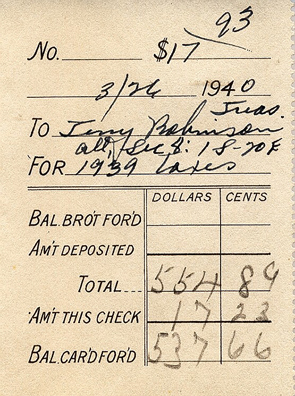 93
No. $17
3/26 1940
Treas.
To Jerry Robinson
all, Sec 8: 18-20E
For 1939 taxes
DOLLARS CENTS
BAL. BRO'T FOR'D
AM'T DEPOSITED
TOTAL... 554 89
AM'T THIS CHECK 17 23
BAL. CAR'D FOR'D 537 66